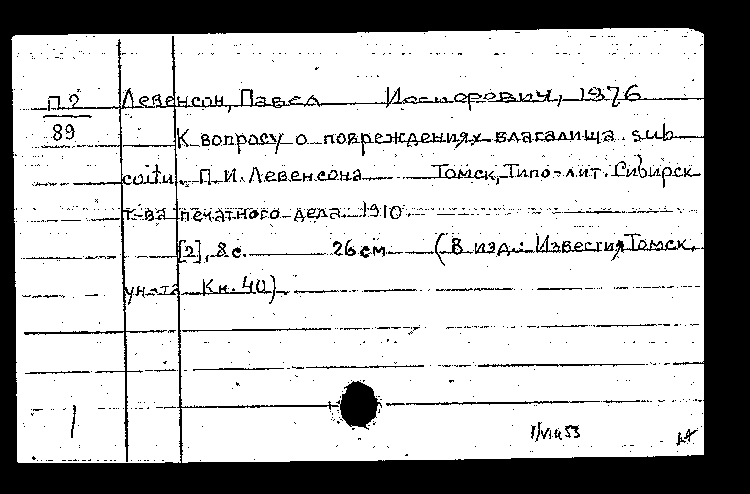 П 2 Левенсон, Павел Иосифович, 1876
89
К вопросу о повреждениях влагалища sub
coitu. П. И. Левенсона Томск, Типо-лит. Сибирск
т-ва печатного дела 1910.
[2], 8 с. 26 см (В изд.: Известия Томск.
ун-та Кн. 40)
1